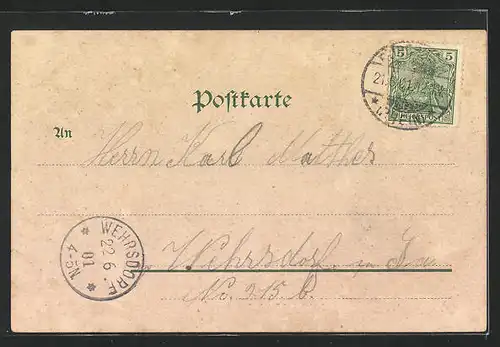 5 5
21.
Postkarte
An
Herrn Karl Matthes
WEHRSDORF
22.6.
01
4-5N
Wehrsdorf in Sa.
No. 215 b.